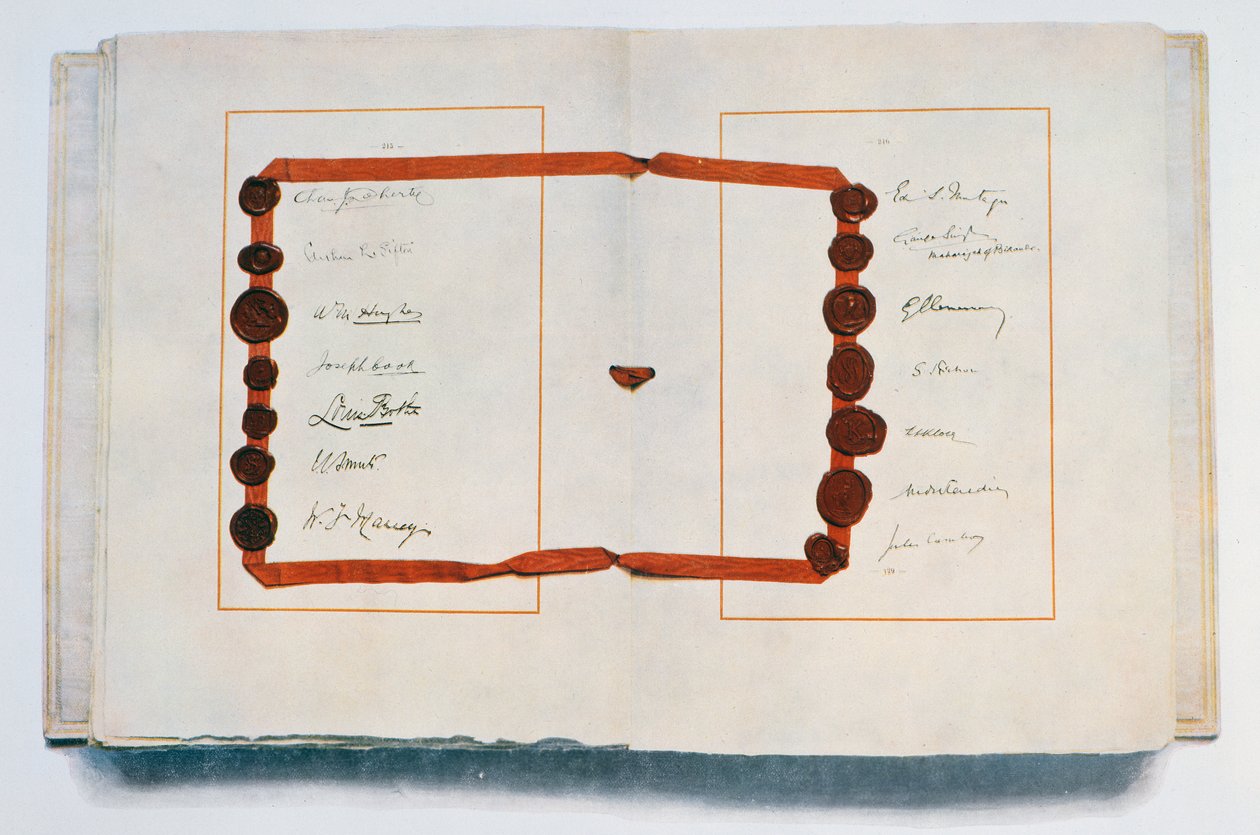 — 215 —
Chas. J. Doherty
Arthur L. Sifton
W M Hughes
Joseph Cook
Louis Botha
J C Smuts.
W. F. Massey
— 216 —
Ed. S. Montagu
Ganga Singh
Maharaja of Bikaner
G Clemenceau
S. Pichon
L L Klotz
André Tardieu
Jules Cambon